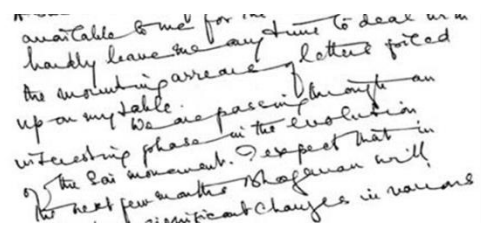 available to me for the
hardly leave me any time to deal with
the mounting arrears of letters piled
up on my table.
We are passing through an
interesting phase in the evolution
of the Sai movement. I expect that in
the next few months Bhagawan will
significant changes in various